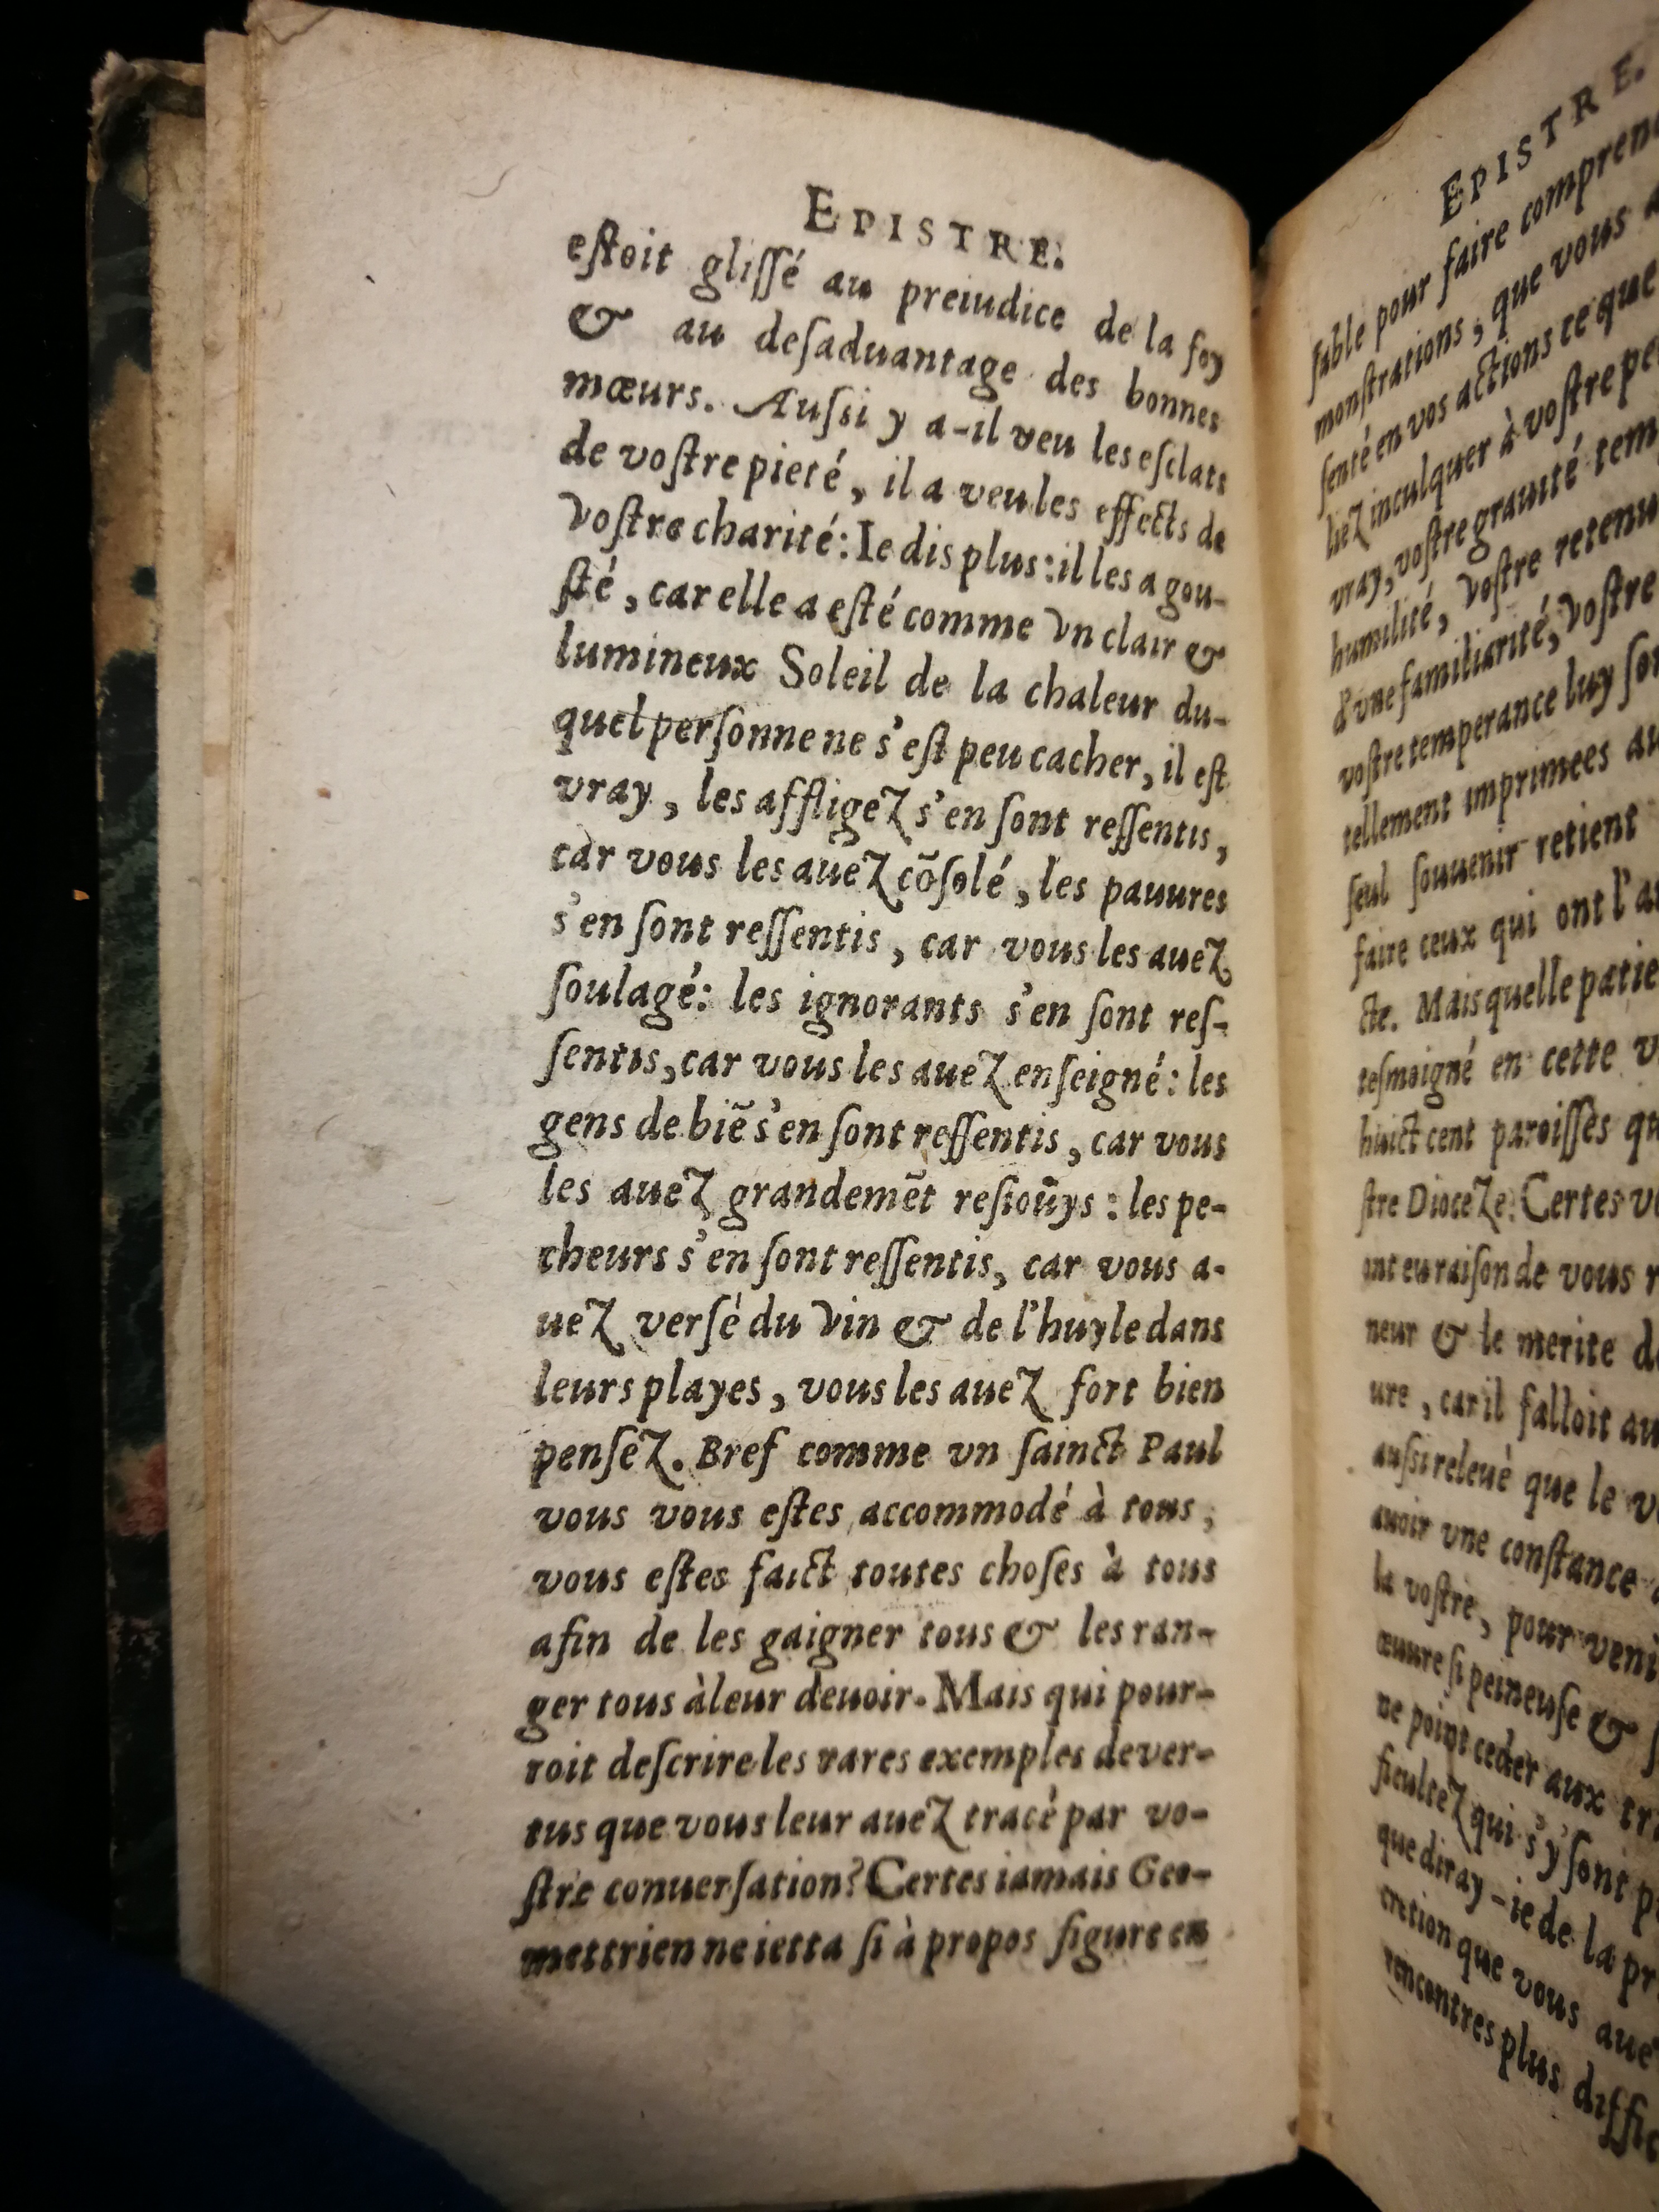 EPISTRE.
eſtoit gliſſé au preiudice de la foy
& au deſaduantage des bonnes
mœurs. Auſsi y a-il veu les eſclats
de voſtre pieté, il a veu les effects de
voſtre charité: Ie dis plus: il les a gou-
ſté, car elle a eſté comme vn clair &
lumineux Soleil de la chaleur du-
quel perſonne ne s'eſt peu cacher, il eſt
vray, les affligez s'en ſont reſſentis,
car vous les auez cõſolé, les pauures
s'en ſont reſſentis, car vous les auez
ſoulagé: les ignorants s'en ſont reſ-
ſentis, car vous les auez enſeigné: les
gens de biẽ s'en ſont reſſentis, car vous
les auez grandemẽt reſioüys: les pe-
cheurs s'en ſont reſſentis, car vous a-
uez verſé du vin & de l'huyle dans
leurs playes, vous les auez fort bien
penſez. Bref comme vn ſainct Paul
vous vous eſtes accommodé à tous,
vous eſtes faict toutes choſes à tous
afin de les gaigner tous & les ran-
ger tous à leur deuoir. Mais qui pour-
roit deſcrire les rares exemples de ver-
tus que vous leur auez tracé par vo-
ſtre conuerſation? Certes iamais Geo-
mettrien ne ietta ſi à propos figure en
EPISTRE.
ſable pour faire compren
monſtrations, que vous a
ſenté en vos actions ce que
liez inculquer à voſtre pe
vray, voſtre grauité tem
humilité, voſtre retenu
d'vne familiarité, voſtre
voſtre temperance luy ſon
tellement imprimees au
ſeul ſouuenir retient
faire ceux qui ont l'a
cte. Mais quelle patie
teſmoigné en cette v
huict cent paroiſſes qu
ſtre Dioceze: Certes v
ont eu raiſon de vous r
neur & le merite d
ure, car il falloit au
auſsi releué que le v
auoir vne conſtance
la voſtre, pour veni
œuure ſi peineuſe & ſ
ne point ceder aux tr
ficultez qui s'y ſont p
que diray-ie de la pr
cretion que vous aue
rencontres plus diffic